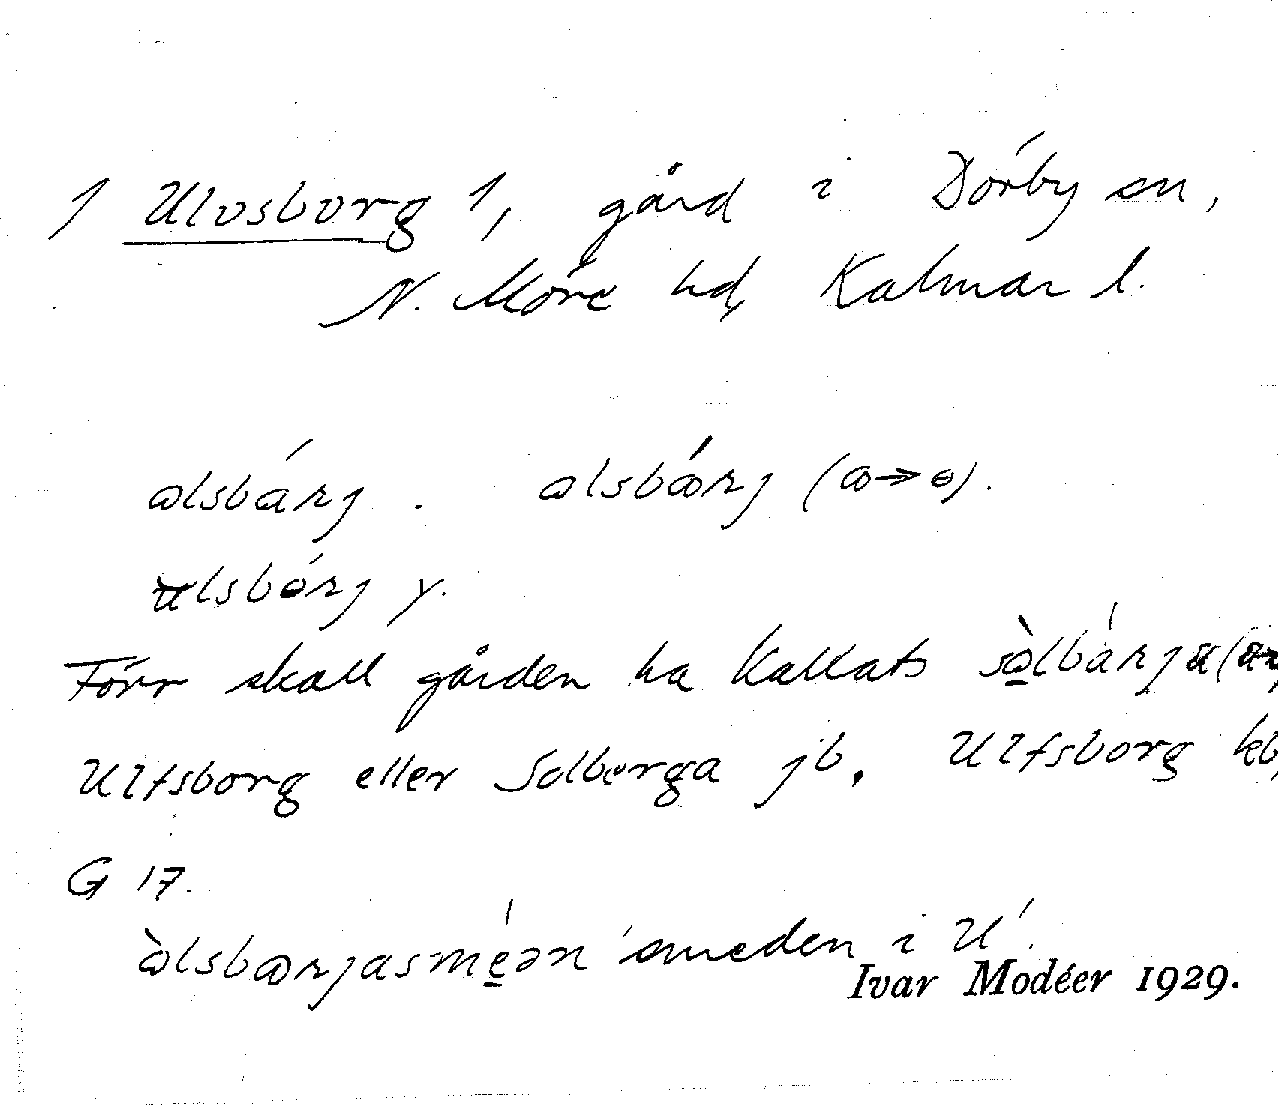 1 Ulvsborg 1, gård i Dörby sn,
N. Möre hd, Kalmar l.
ɷlsbárj . ɷlsbɷ́rj (ɷ→ɵ).
ulsbɵ́rj y.
Förr skall gården ha kallats
Ulfsborg eller Solberga jb, Ulfsborg kb,
G 17.
'smeden i U'.
Ivar Modéer 1929.